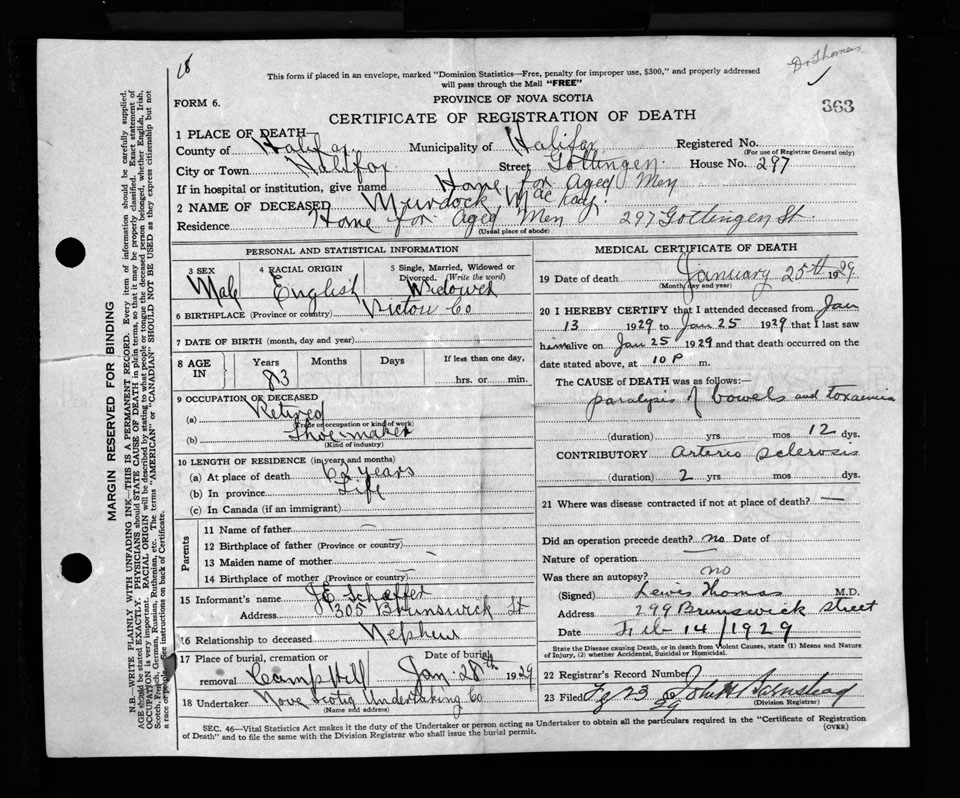 18
Dr Thomas
This form if placed in an envelope, marked "Dominion Statistics—Free, penalty for improper use, $300," and properly addressed
will pass through the Mail "FREE"
FORM 6.
PROVINCE OF NOVA SCOTIA
363
CERTIFICATE OF REGISTRATION OF DEATH
1 PLACE OF DEATH
County of Halifax Municipality of Halifax Registered No.
(For use of Registrar General only)
City or Town Halifax Street Gottingen House No. 297
If in hospital or institution, give name Home for Aged Men
2 NAME OF DECEASED Murdock MacKay
Residence Home for Aged Men 297 Gottingen St.
(Usual place of abode)
PERSONAL AND STATISTICAL INFORMATION
3 SEX 4 RACIAL ORIGIN 5 Single, Married, Widowed or
Divorced. (Write the word)
Male English Widower
6 BIRTHPLACE (Province or country) Pictou Co
7 DATE OF BIRTH (month, day and year)
8 AGE IN Years Months Days If less than one day,
83 hrs. or min.
9 OCCUPATION OF DECEASED
(a) Retired
(Trade or occupation or kind of work)
(b) Shoemaker
(Kind of industry)
10 LENGTH OF RESIDENCE (in years and months)
(a) At place of death 62 years
(b) In province Life
(c) In Canada (if an immigrant)
Parents
11 Name of father —
12 Birthplace of father (Province or country) —
13 Maiden name of mother
14 Birthplace of mother (Province or country) —
15 Informant's name J E Schaffer
Address 305 Brunswick St
16 Relationship to deceased Nephew
17 Place of burial, cremation or Date of burial
removal Camphill Jan 28th 1929
18 Undertaker Nova Scotia Undertaking Co
(Name and address)
MEDICAL CERTIFICATE OF DEATH
19 Date of death January 25th 1929
(Month, day and year)
20 I HEREBY CERTIFY that I attended deceased from Jan
13 1929 to Jan 25 1929 that I last saw
him alive on Jan 25 1929 and that death occurred on the
date stated above, at 10 P m.
The CAUSE OF DEATH was as follows:—
paralysis of bowels and toxaemia
(duration) yrs mos 12 dys.
CONTRIBUTORY Arterio Sclerosis
(duration) 2 yrs mos dys.
21 Where was disease contracted if not at place of death? —
Did an operation precede death? no Date of
Nature of operation —
Was there an autopsy? no
(Signed) Lewis Thomas M.D.
Address 299 Brunswick Street
Date Feb 14/1929
State the Disease causing Death, or in death from Violent Causes, state (1) Means and
Nature of Injury, (2) whether Accidental, Suicidal or Homicidal.
22 Registrar's Record Number
23 Filed 23 29 John
(Division Registrar)
SEC. 46—Vital Statistics Act makes it the duty of the Undertaker or person acting as Undertaker to obtain all the particulars required in the "Certificate of Registration
of Death" and to file the same with the Division Registrar who shall issue the burial permit. (OVER)
MARGIN RESERVED FOR BINDING
N.B.—WRITE PLAINLY WITH UNFADING INK—THIS IS A PERMANENT RECORD. Every item of information should be carefully supplied.
AGE should be stated EXACTLY. PHYSICIANS should STATE CAUSE OF DEATH in plain terms, so that it may be properly classified. Exact statement of
OCCUPATION is very important. RACIAL ORIGIN will be described by stating to what people or tongue the deceased person belonged, whether English, Irish,
Scotch, French, German, Russian, Ruthenian, etc. The terms "AMERICAN" or "CANADIAN" SHOULD NOT BE USED as they express citizenship but not
a race or people. See instructions on back of Certificate.